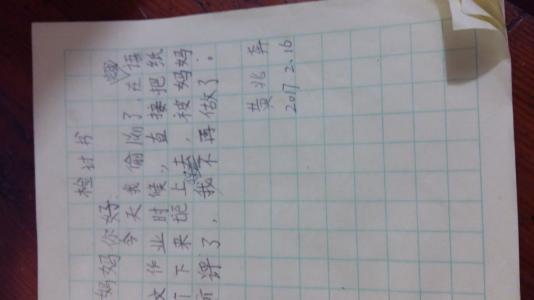 检讨书
妈妈你好
今天我偷懒了,在语
文作业时候,直接把纸
下来上,被妈妈
了,我不再做了。
黄兆
2017.2.16